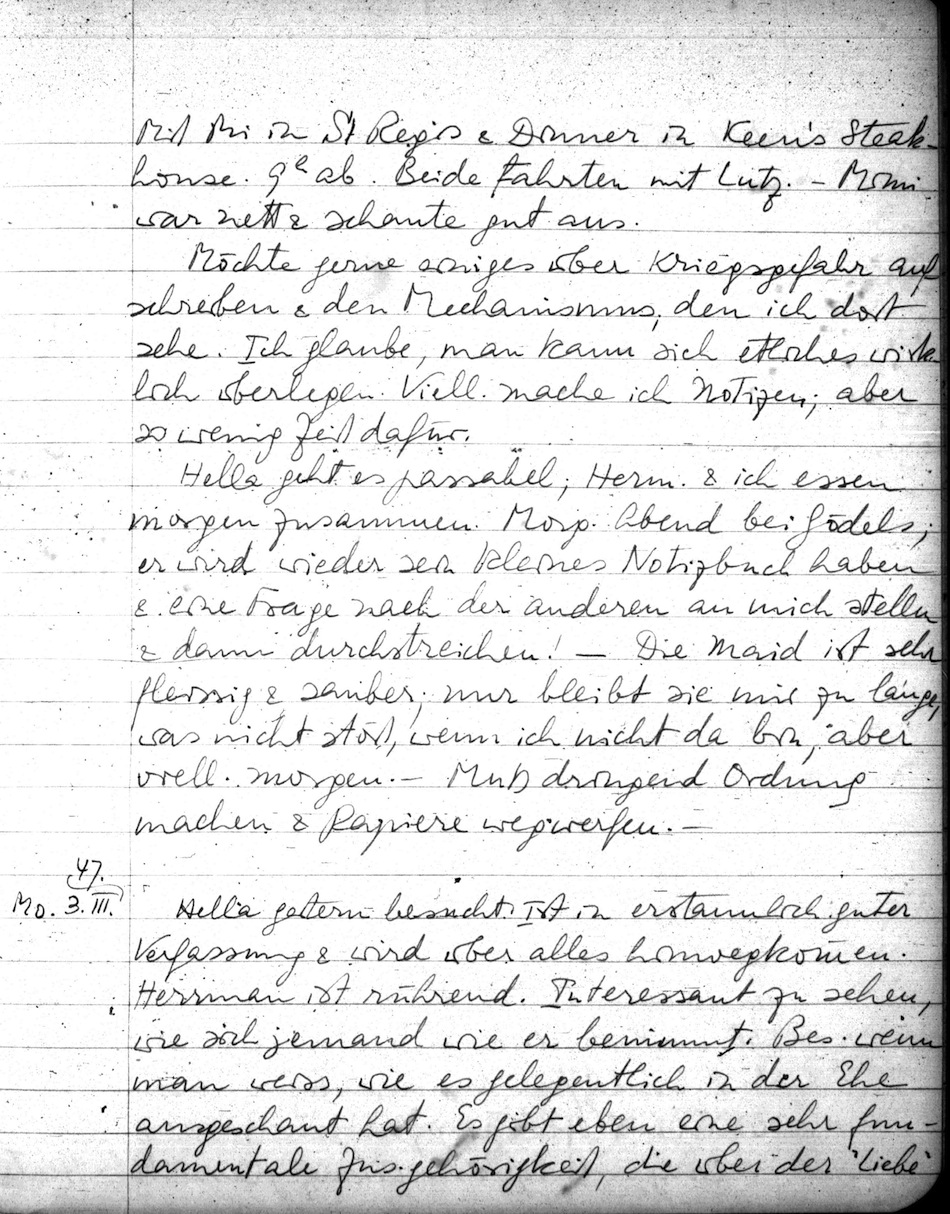 Mit Mi in St Regis & Dinner in Keen's Steak-
house. 9h ab. Beide Fahrten mit Lutz. – Mimi
war nett & schaute gut aus.
Möchte gerne einiges über Kriegsgefahr auf
schreiben & den Mechanismus, den ich dort
sehe. Ich glaube, man kann sich etliches wirk-
lich überlegen. Viell. mache ich Notizen; aber
so wenig Zeit dafür.
Hella geht es passabel; Herm. & ich essen
morgen zusammen. Morg. Abend bei Gödels;
er wird wieder sein kleines Notizbuch haben
& eine Frage nach der anderen an mich stellen
& dann durchstreichen! – Die Maid ist sehr
fleissig & sauber; nur bleibt sie mir zu lange,
was nicht stört, wenn ich nicht da bin, aber
viell. morgen. – Muß dringend Ordnung
machen & Papiere wegwerfen. –
47.
Mo. 3. III. Hella gestern besucht. Ist in erstaunlich guter
Verfassung & wird über alles hinwegkomen.
Herrman ist rührend. Interessant zu sehen,
wie sich jemand wie er benimmt. Bes. wenn
man weiss, wie es gelegentlich in der Ehe
ausgeschaut hat. Es gibt eben eine sehr fun-
damentale Zus.gehörigkeit, die über der 'Liebe'